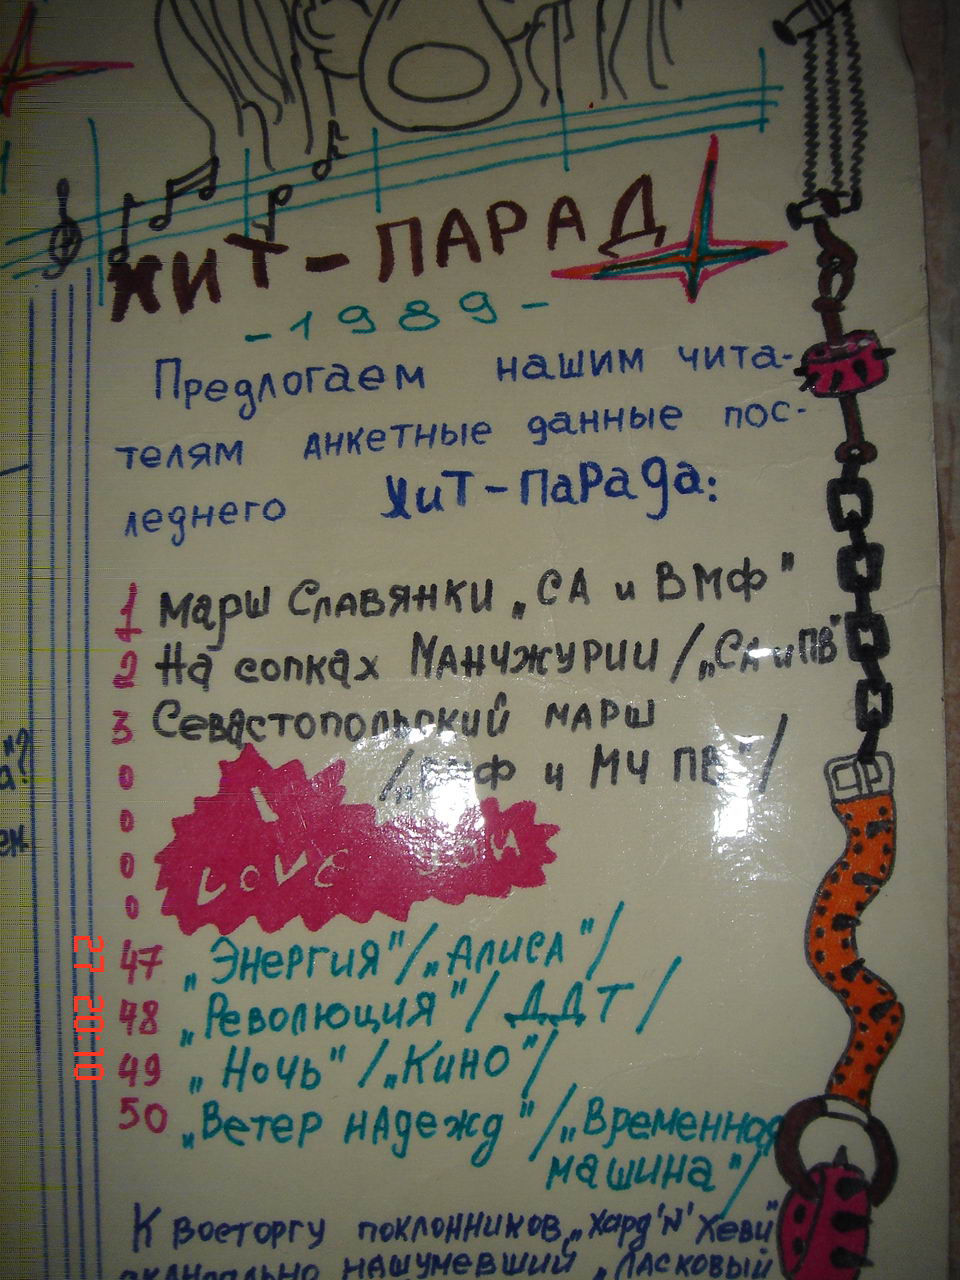 ХИТ-ПАРАД
-1989-
Предлогаем нашим чита-
телям анкетные данные пос-
леднего Хит-парада:
1 Марш Славянки „СА и ВМФ"
2 На сопках Манчжурии /„СА и ПВ"
3 Севастопольский марш
0 /„ВМФ и МЧ ПВ"/
0
0
0
I LOVE you
47 „Энергия"/„Алиса"/
48 „Революция"/ ДДТ /
49 „Ночь" /„Кино"/
50 „Ветер надежд"/„Временная
машина"/
К восторгу поклонников „Хард'N'Хеви"
скандально нашумевший „Ласковый
27 20:10